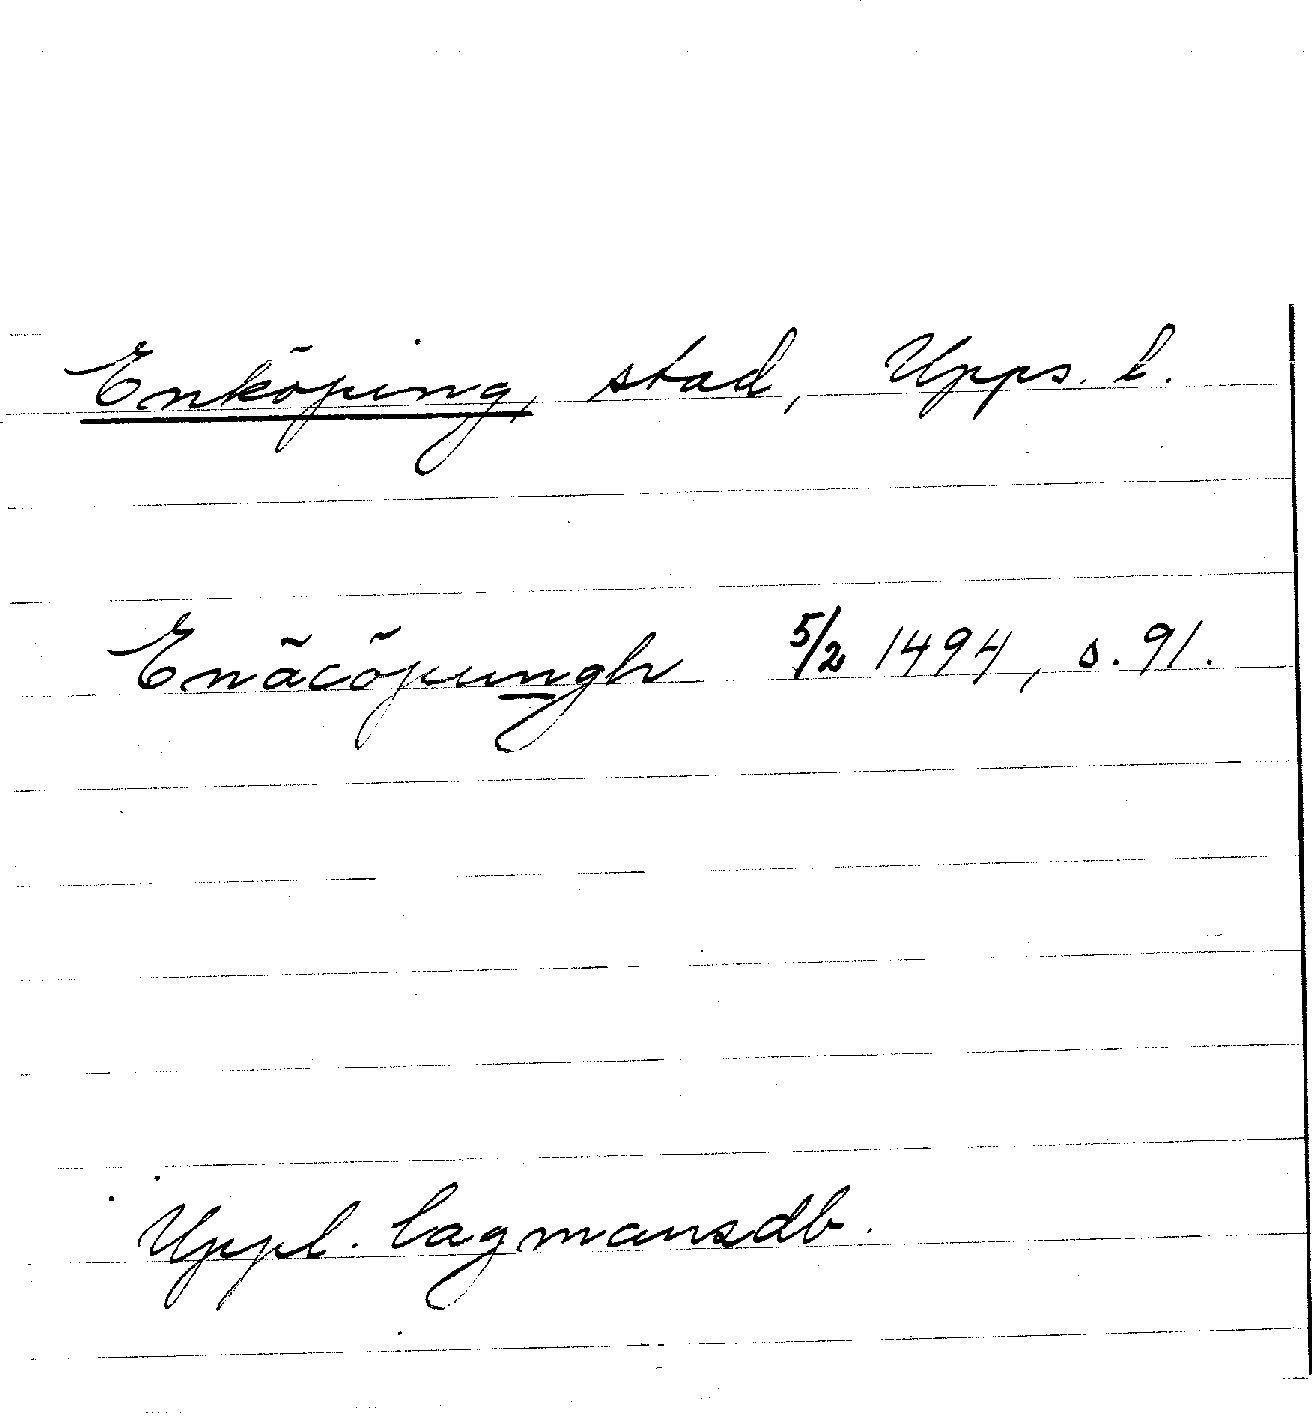 Enköping, stad, Upps. l.
Enäcöpungh 5/2 1494, s. 91.
Uppl. lagmansdb.